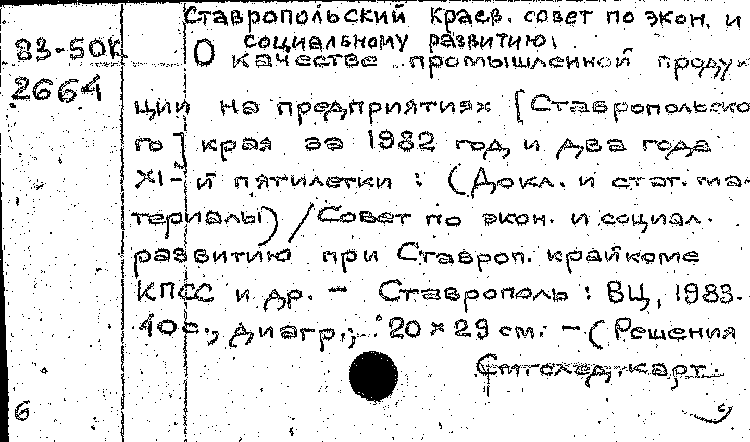 Ставропольский краев. совет по экон. и
социальному развитию.
83-50к
О качестве промышленной продук
2664
ции на предприятиях [Ставропольско
го] края за 1982 год и два года
XI-й пятилетки : (Докл. и стат. ма-
териалы) / Совет по экон. и социал.
развитию при Ставроп. крайкоме
КПСС и др. - Ставрополь : ВЦ, 1983.
40с., диагр.; 20×29 см. - (Решения
См. след. карт.
6